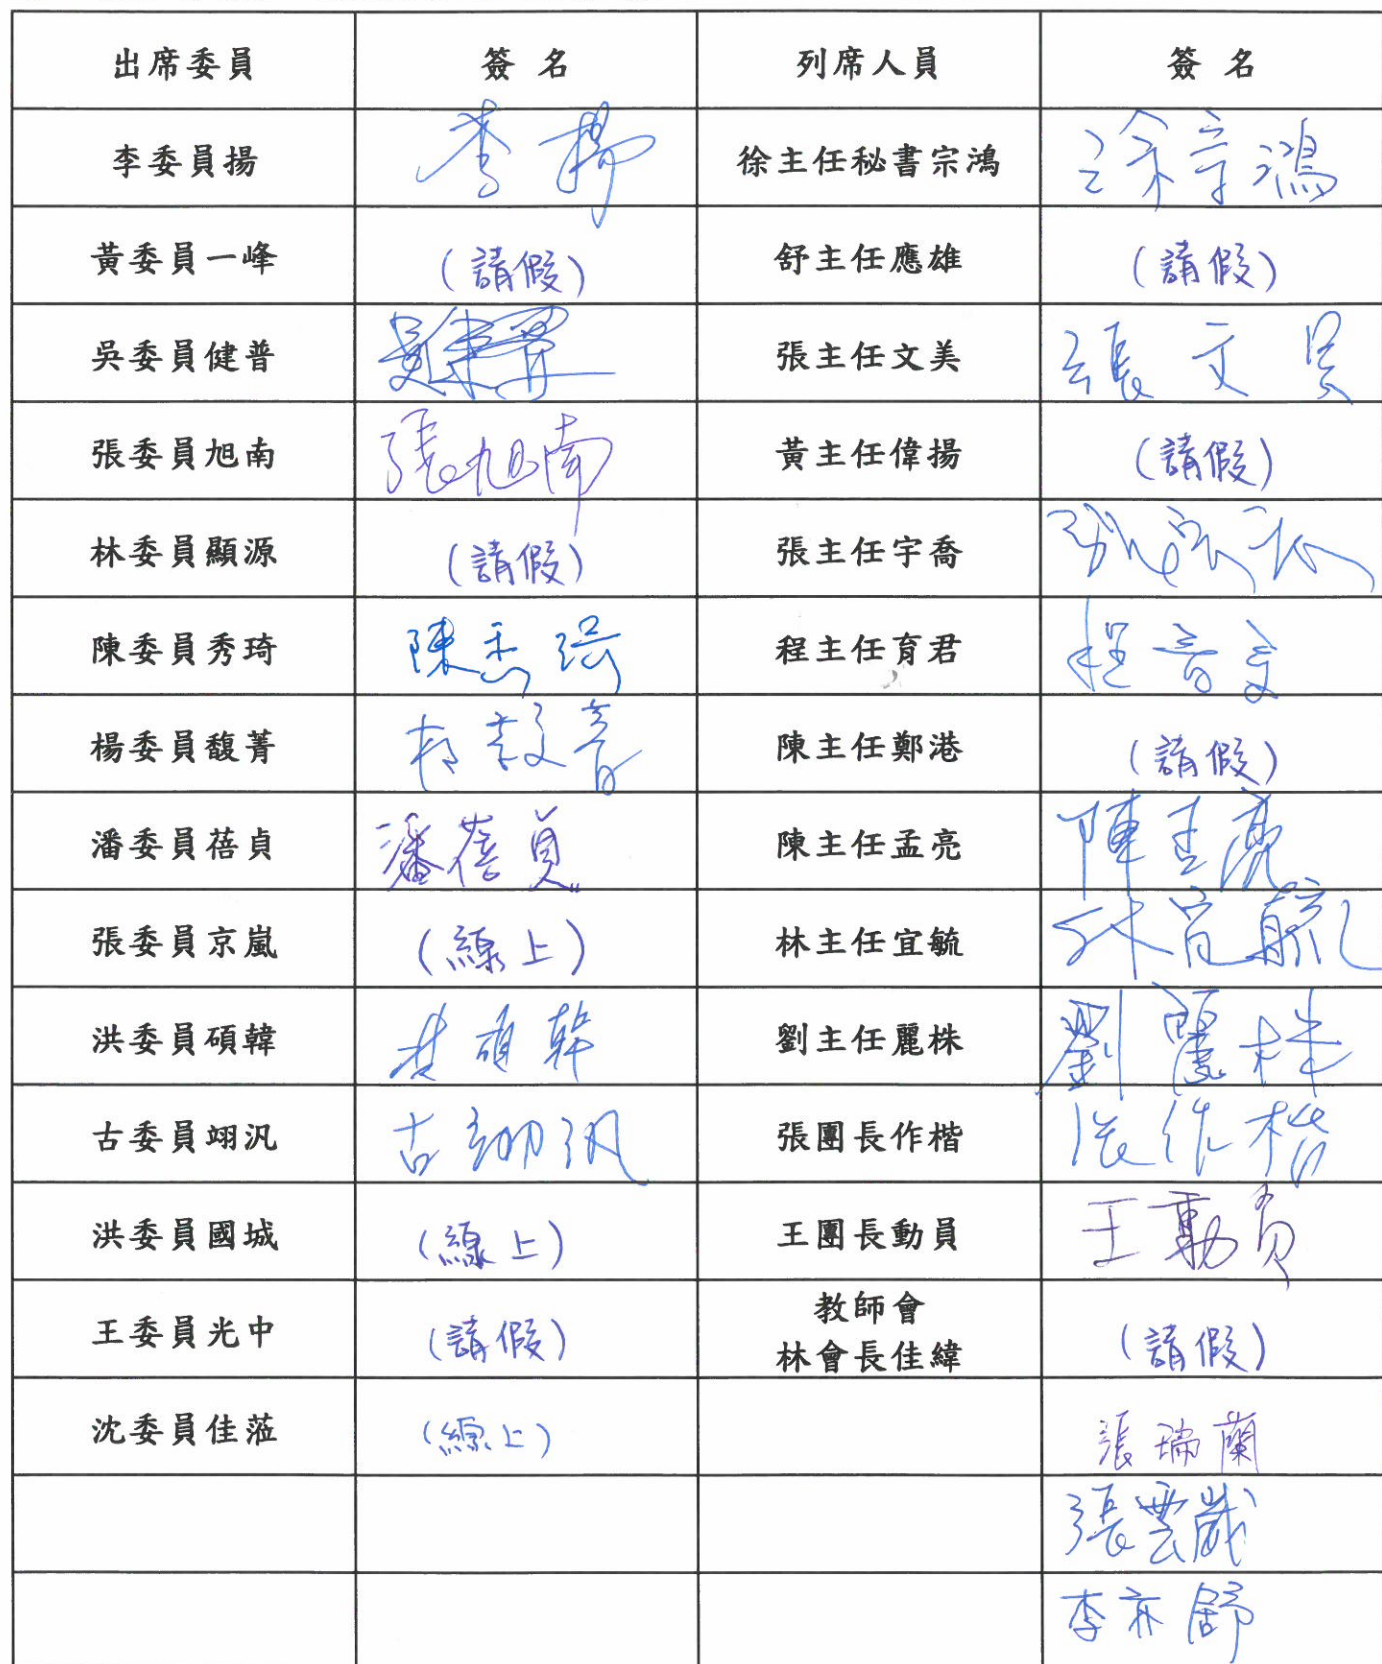 出席委員 簽名 列席人員 簽名
李委員揚 李揚 徐主任秘書宗鴻 徐宗鴻
黃委員一峰 (請假) 舒主任應雄 (請假)
吳委員健普 吳健普 張主任文美 張文美
張委員旭南 張旭南 黃主任偉揚 (請假)
林委員顯源 (請假) 張主任宇喬
陳委員秀琦 陳秀琦 程主任育君 程育君
楊委員馥菁 楊馥菁 陳主任鄭港 (請假)
潘委員蓓貞 潘蓓貞 陳主任孟亮 陳孟亮
張委員京嵐 (線上) 林主任宜毓 林宜毓
洪委員碩韓 洪碩韓 劉主任麗株 劉麗株
古委員翊汎 古翊汎 張團長作楷 張作楷
洪委員國城 (線上) 王團長動員 王動員
王委員光中 (請假) 教師會
林會長佳緯 (請假)
沈委員佳蒞 (線上) 張瑞蘭
張雲崴
李亦舒